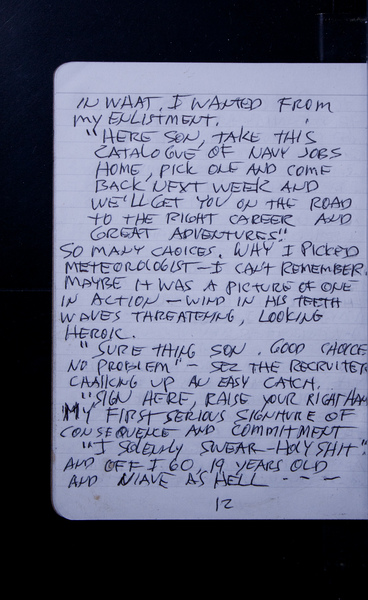 IN WHAT, I WANTED FROM
MY ENLISTMENT.
"HERE SON, TAKE THIS
CATALOGUE OF NAVY JOBS
HOME, PICK ONE AND COME
BACK NEXT WEEK AND
WE'LL GET YOU ON THE ROAD
TO THE RIGHT CAREER AND
GREAT ADVENTURES"
SO MANY CHOICES. WHY I PICKED
METEOROLOGIST - I CAN'T REMEMBER.
MAYBE IT WAS A PICTURE OF ONE
IN ACTION - WIND IN HIS TEETH
WAVES THREATENING, LOOKING
HEROIC.
"SURE THING SON. GOOD CHOICE
NO PROBLEM" - SEZ THE RECRUITER
CHALKING UP AN EASY CATCH.
"SIGN HERE, RAISE YOUR RIGHT HAN
MY FIRST SERIOUS SIGNTURE OF
CONSEQUENCE AND COMMITMENT
"I SOLEMLY SWEAR - HOLY SHIT"
AND OFF I GO, 19 YEARS OLD
AND NIAVE AS HELL - - -
12